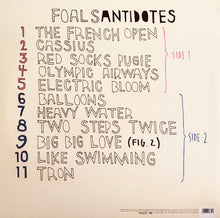 FOALS ANTIDOTES
1 THE FRENCH OPEN
2 CASSIUS
3 RED SOCKS PUGIE
4 OLYMPIC AIRWAYS
5 ELECTRIC BLOOM
SIDE 1
6 BALLOONS
7 HEAVY WATER
8 TWO STEPS TWICE
9 BIG BIG LOVE (FIG. 2)
10 LIKE SWIMMING
11 TRON
SIDE 2